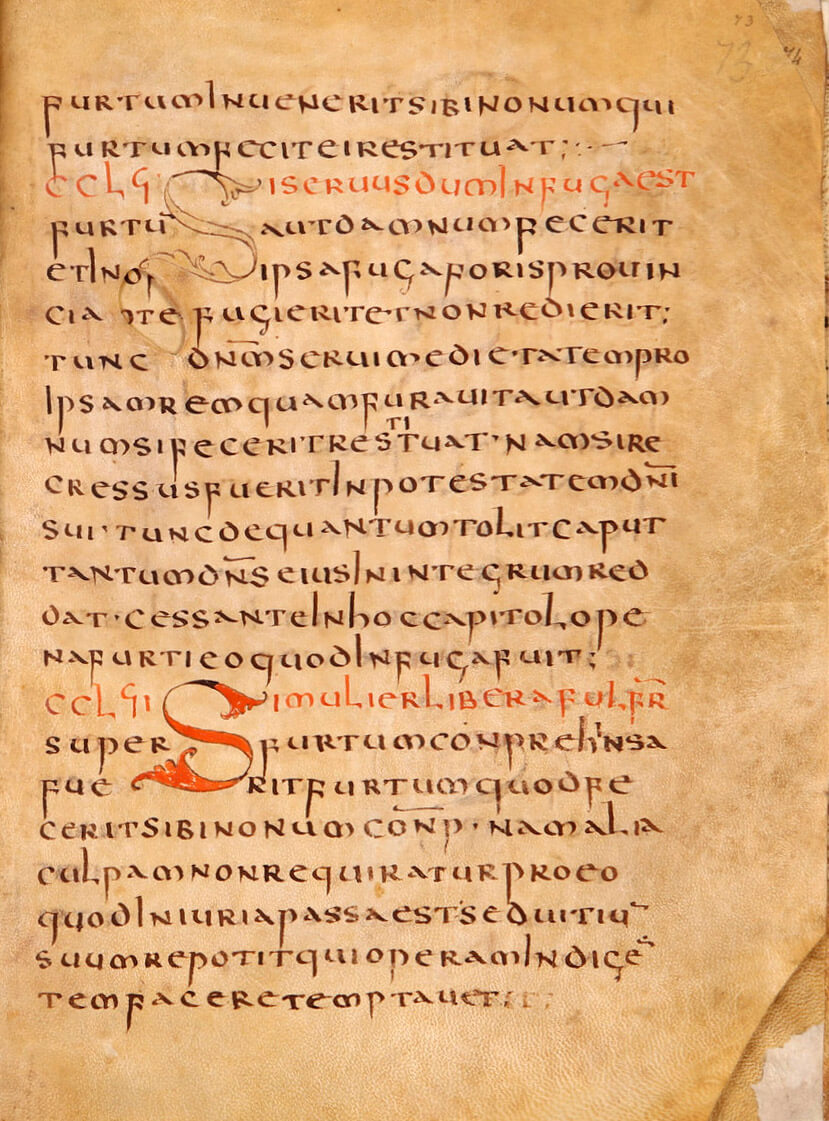 furtum inuenerit sibi nonum qui
furtum fecit ei restituat;
CCLVI Si seruus dum in fuga est
furtū aut damnum fecerit
et in ipsa fuga foris prouin
cia fugierit et non redierit;
tunc dn̄m serui medietatem pro
ipsam rem quam furauit aut dam
num si fecerit restituat · nam si re
cressus fuerit in potestatem dn̄i
sui · tunc de quantum tolit caput
tantum dn̄s eius in integrum red
dat · cessante in hoc capitolo pe
na furti eo quod in fuga fuit;
CCLVII Si mulier libera fulfr̄
super furtum conprehinsa
fuerit furtum quod fe
cerit sibi nonum con̄p · nam alia
culpam non requiratur pro eo
quod iniuria passa est sed uitiū
suum repotit qui operam indigē
tem facere temptauet;
73
73
74